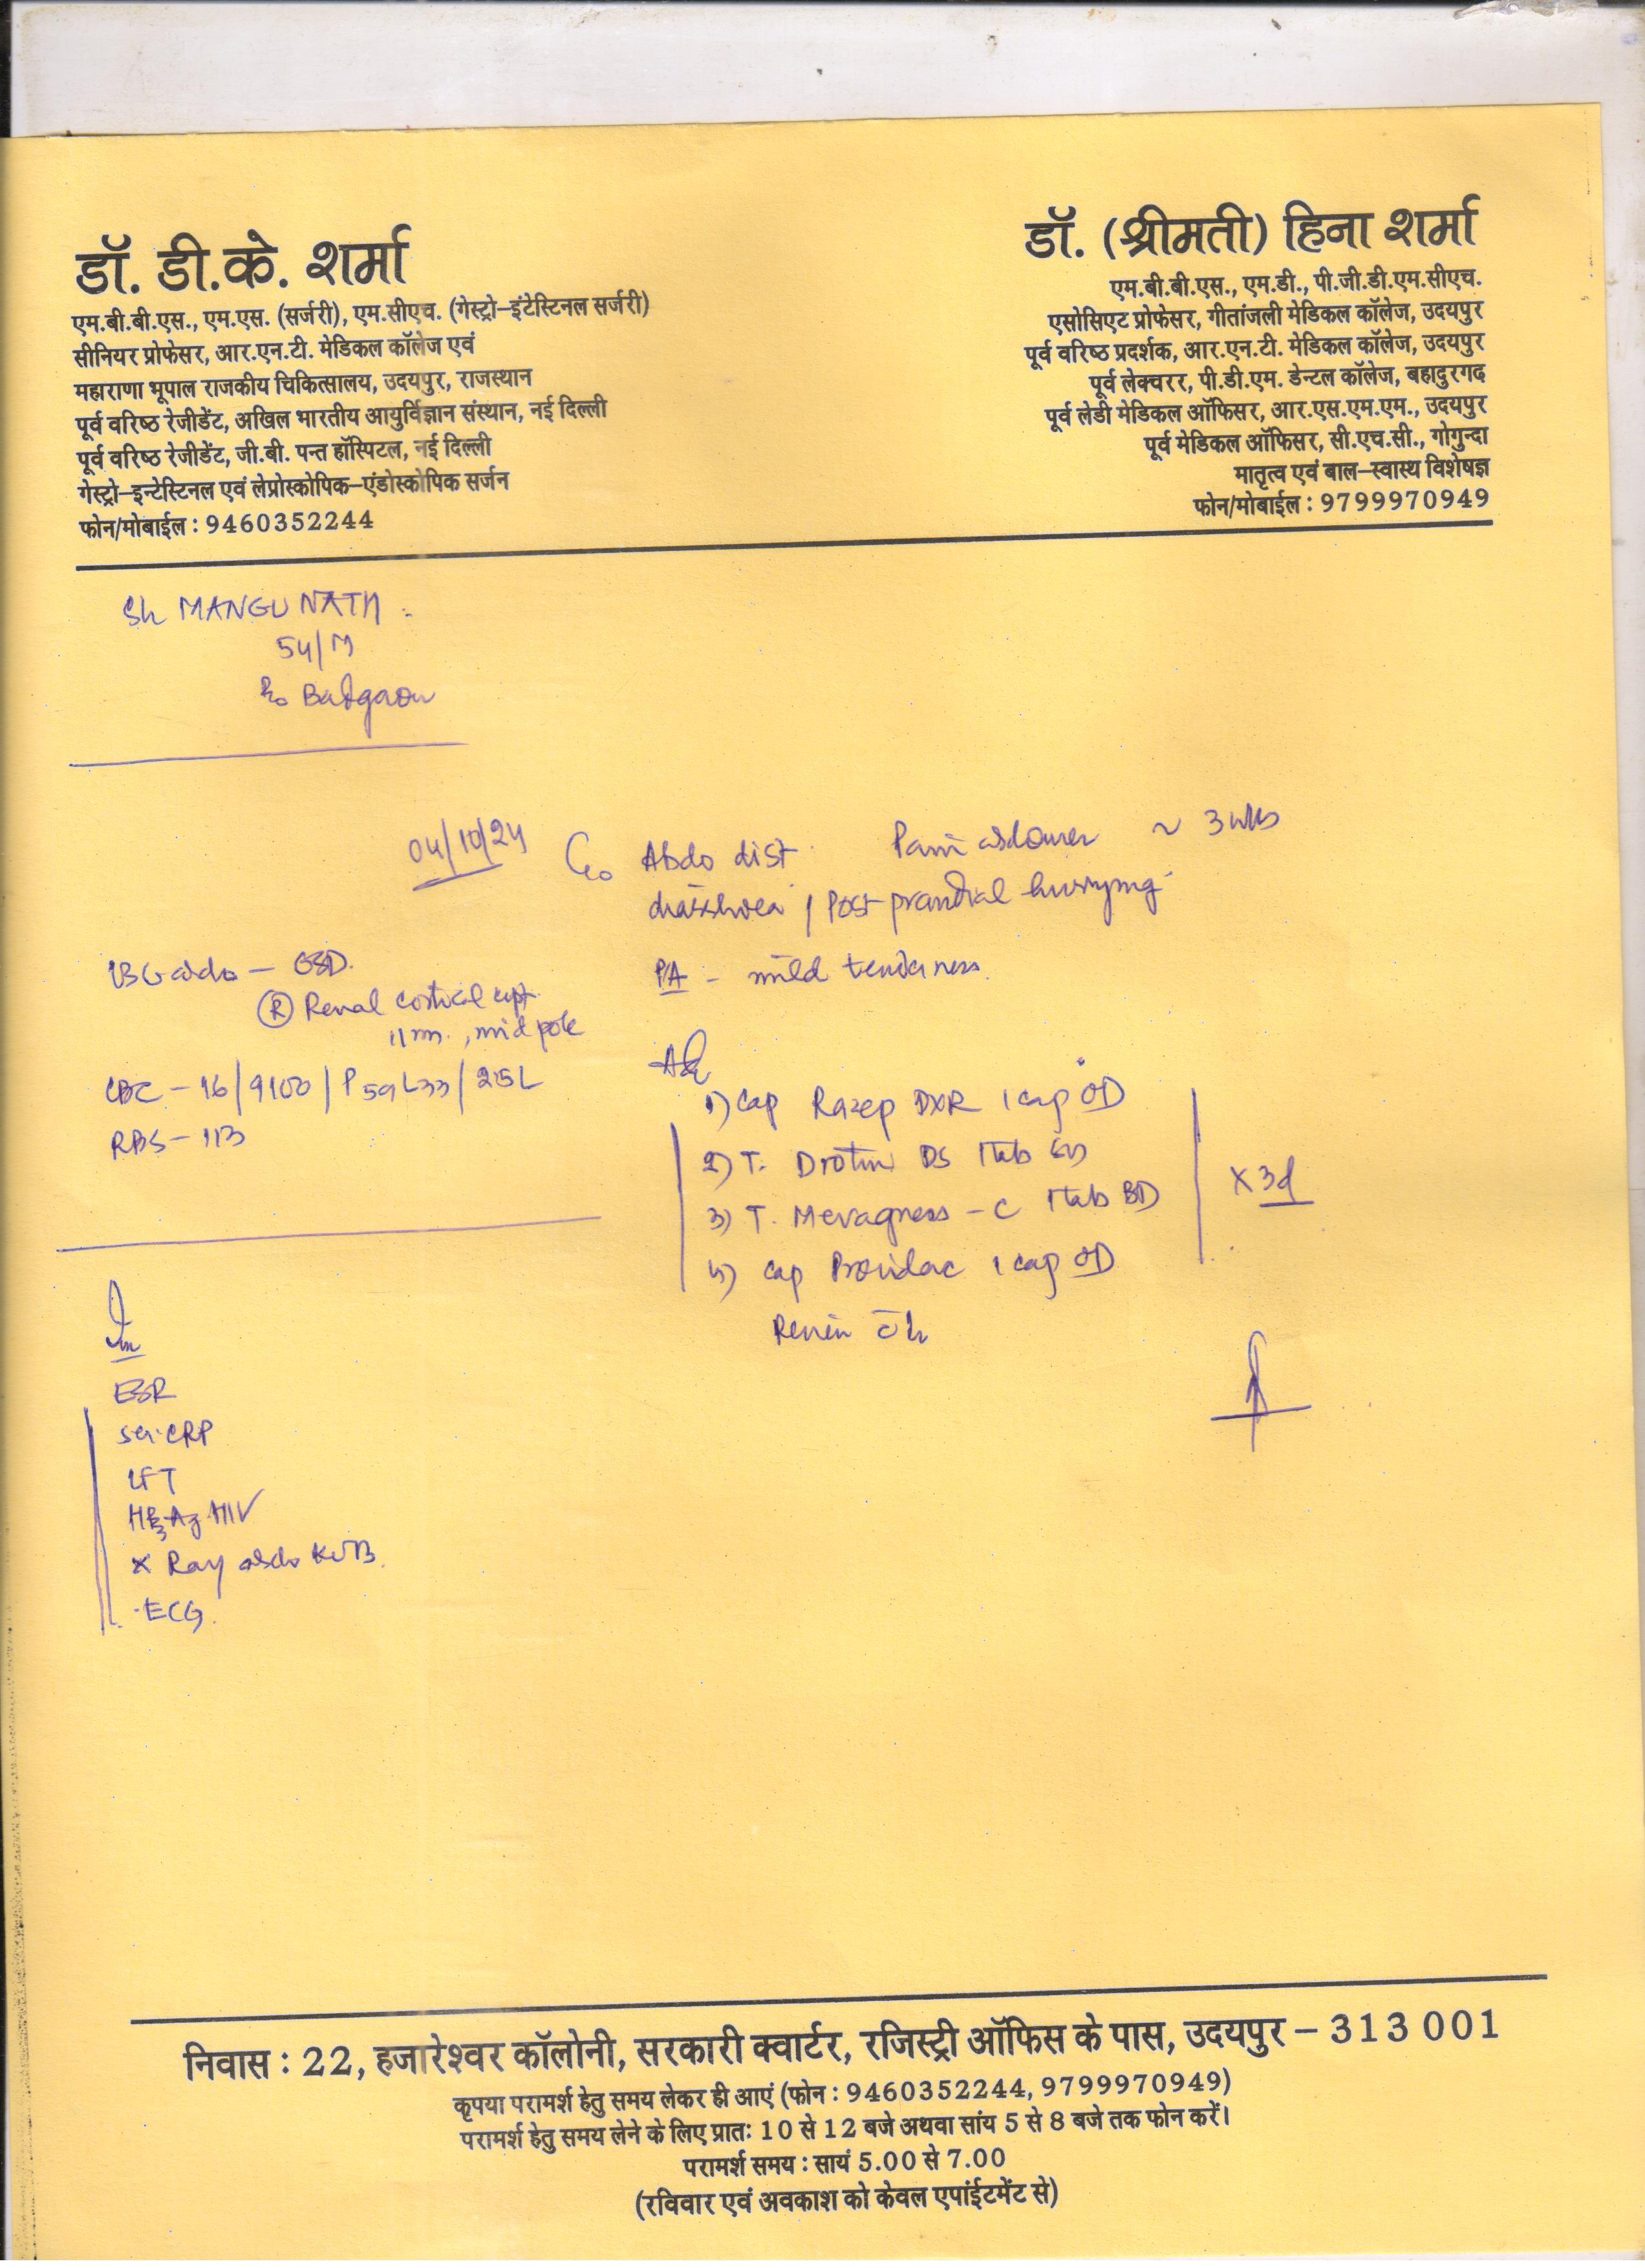 डॉ. डी.के. शर्मा
एम.बी.बी.एस., एम.एस. (सर्जरी), एम.सीएच. (गेस्ट्रो-इंटेस्टिनल सर्जरी)
सीनियर प्रोफेसर, आर.एन.टी. मेडिकल कॉलेज एवं
महाराणा भूपाल राजकीय चिकित्सालय, उदयपुर, राजस्थान
पूर्व वरिष्ठ रेजीडेंट, अखिल भारतीय आयुर्विज्ञान संस्थान, नई दिल्ली
पूर्व वरिष्ठ रेजीडेंट, जी.बी. पन्त हॉस्पिटल, नई दिल्ली
गेस्ट्रो-इन्टेस्टिनल एवं लेप्रोस्कोपिक-एंडोस्कोपिक सर्जन
फोन/मोबाईल : 9460352244
डॉ. (श्रीमती) हिना शर्मा
एम.बी.बी.एस., एम.डी., पी.जी.डी.एम.सीएच.
एसोसिएट प्रोफेसर, गीतांजली मेडिकल कॉलेज, उदयपुर
पूर्व वरिष्ठ प्रदर्शक, आर.एन.टी. मेडिकल कॉलेज, उदयपुर
पूर्व लेक्चरर, पी.डी.एम. डेन्टल कॉलेज, बहादुरगढ
पूर्व लेडी मेडिकल ऑफिसर, आर.एस.एम.एम., उदयपुर
पूर्व मेडिकल ऑफिसर, सी.एच.सी., गोगुन्दा
मातृत्व एवं बाल-स्वास्थ विशेषज्ञ
फोन/मोबाईल : 9799970949
Sh MANGU NATH
54/M
Badgaon
04/10/24
C/o Abdo dist Pain abdomen ~ 3 wks
diarrhoea / Post prandial hurrying
P/A - mild tenderness
USG abdo - GBD
(R) Renal cortical cyst
11 mm, mid pole
CBC - 16/9100/P59 L33/2.15L
RBS - 113
Adv
1) Cap Razep DXR 1 cap OD
2) T. Drotin DS 1 tab
3) T. Mevagness - C 1 tab BD
4) Cap Providac 1 cap OD
x 3d
Review
Inv
ESR
Sr. CRP
LFT
HBsAg HIV
X Ray abdo KUB
ECG
निवास : 22, हजारेश्वर कॉलोनी, सरकारी क्वार्टर, रजिस्ट्री ऑफिस के पास, उदयपुर - 313 001
कृपया परामर्श हेतु समय लेकर ही आएं (फोन : 9460352244, 9799970949)
परामर्श हेतु समय लेने के लिए प्रातः 10 से 12 बजे अथवा सांय 5 से 8 बजे तक फोन करें।
परामर्श समय : सायं 5.00 से 7.00
(रविवार एवं अवकाश को केवल एपांईटमेंट से)